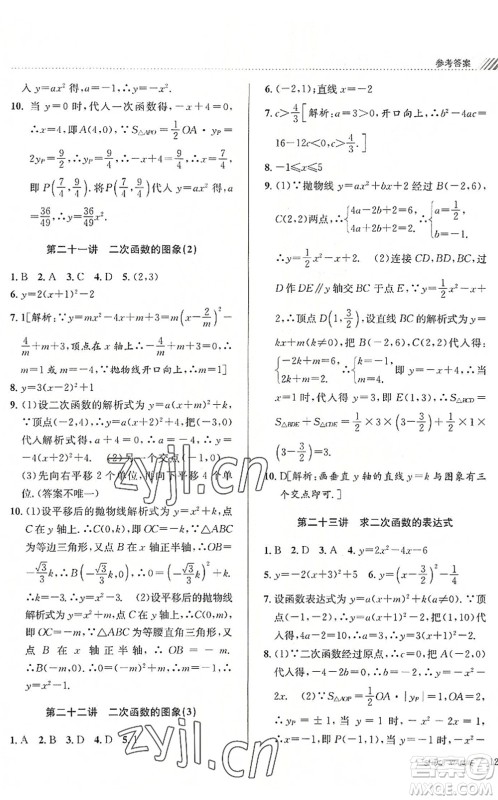 参考答案
入 y=ax²,a=-1,∴y=-x².
10. 当 y=0 时,代入一次函数得 -x+4=0
∴x=4.即 A(4,0) ∵S△APO=1/2 OA·
yP=9/2 ∴yP=9/4 ∴-x+4=9/4 ∴x=7/4,
即 P(7/4,9/4),将其代入 y=ax² 得,a=
36/49 ∴y=36/49 x².
第二十一讲 二次函数的图象(2)
1. B 2. A 3. C 4. D 5. (2,3)
6. y=2(x+1)²-2
7. 1[解析:∵y=mx²-4x+m+3=m(x-2/m)²
-4/m+m+3,顶点在 x 轴上,∴-4/m+m+3
=0,∴m=1 或-4.∵抛物线开口向上,∴m=1]
8. y=2(x-3)²+1
9. (1)设二次函数的解析式为 y=a(x+m)²+k,
∵顶点(-2,-4),∴y=a(x+2)²-4.把(-3,0)
代入解析式,得 a=4,∴y=4(x+2)²-4
(2)另一个交点(-1,0)
(3)先向右平移 2 个单位,再向上平移 4 个单
位.(答案不唯一)
10. (1)设平移后的抛物线解析式为 y=-x²+k,
∴C 点在 y 轴上,C(0,k),又∵△ABC 为等
边三角形,∴B 点在 x 轴正半轴,∴B(-√3/3 k,0),
∴-(-√3/3 k)²+k=0,解得 k=0 或 3.
∴k=-3.∴y=-x²-3 (2)设平移后的抛物线
解析式为 y=-x²+k,∴C 点在 y 轴上,C(0,k),
又∵△ABC 为等腰直角三角形,∴B 点在 x 正半轴,
∴B(-k,0),∴-(-k)²+k=0,解得 k=0 或 1,∴k=-1.∴y=-x²-1
第二十二讲 二次函数的图象(3)
1. A 2. D 3. A 4. D
6. (-2,1);直线 x=-2
7. c>4/3 [解析:∵开口向上,∴b²-4ac=
16-12c<0,∴c>4/3.]
8. -1≤x≤5
9. (1)∵抛物线 y=ax²+bx+2 经过 B(-2,6),
C(2,2)两点,∴{4a-2b+2=6 4a+2b+2=2 ∴{a=1/2 b=-1
∴y=1/2 x²-x+2. (2)连接 CD,BD,BC,过
点 D 作 DE∥y 轴交 BC 于点 E,∵y=1/2 x²-x
+2,∴顶点 D(1,3/2),设直线 BC 的解析式为 y=
kx+n(k≠0),∵B(-2,6),C(2,2),∴
{-2k+n=6 2k+n=2 ∴{k=-1 n=4 ∴y=-x+4,∴E(1,3),∴S△BCD=
S△BDE+S△CDE=1/2×3×(3-3/2)+1/2×1×(3
-3/2)=3.
10. D[解析:画垂直 y 轴的直线 y=k 与图象有三个
交点即可.]
第二十三讲 求二次函数的表达式
1. B 2. D 3. A 4. y=2x²-4x-6
5. y=-2(x+3)²+5 6. y=(x-1/2)²-1/4
7. 设函数表达式为 y=a(x+m)²+k,∵顶点(-1,
2),∴y=a(x+1)²+2,将 P(1,10)代入得,
10=4a+2,∴a=2,∴y=2(x+1)²+2.
8. (1)∵二次函数经过原点,∴c=0.将 A(-4,0)
代入得,-16-4b=0,∴b=-4,∴y=-x²-4x
(2)∵S△AOP=1/2 OA·|yP|=8,∴1/2×4·|yP|=8,
∴yP=±4.当 yP=4 时,-x²-4x=4,∴x=
-2,∴P(-2,4);当 yP=-4 时,-x²-4x=
zyjl.cn